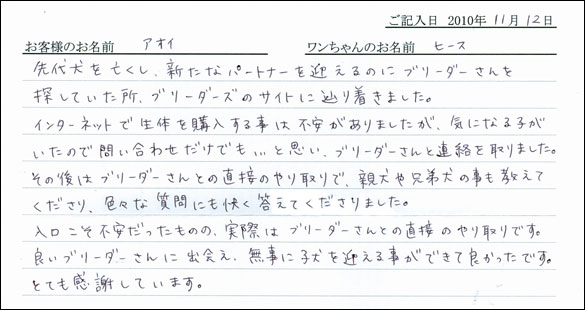 ご記入日 2010年 11月 12日
お客様のお名前 アオイ ワンちゃんのお名前 ヒース
先代犬を亡くし、新たなパートナーを迎えるのにブリーダーさんを
探していた所、ブリーダーズのサイトに辿り着きました。
インターネットで生体を購入する事は不安がありましたが、気になる子が
いたので問い合わせだけでも…と思い、ブリーダーさんと連絡を取りました。
その後はブリーダーさんとの直接のやり取りで、親犬や兄弟犬の事も教えて
くださり、色々な質問にも快く答えてくださりました。
入口こそ不安だったものの、実際はブリーダーさんとの直接のやり取りです。
良いブリーダーさんに出会え、無事に子犬を迎える事ができて良かったです。
とても感謝しています。